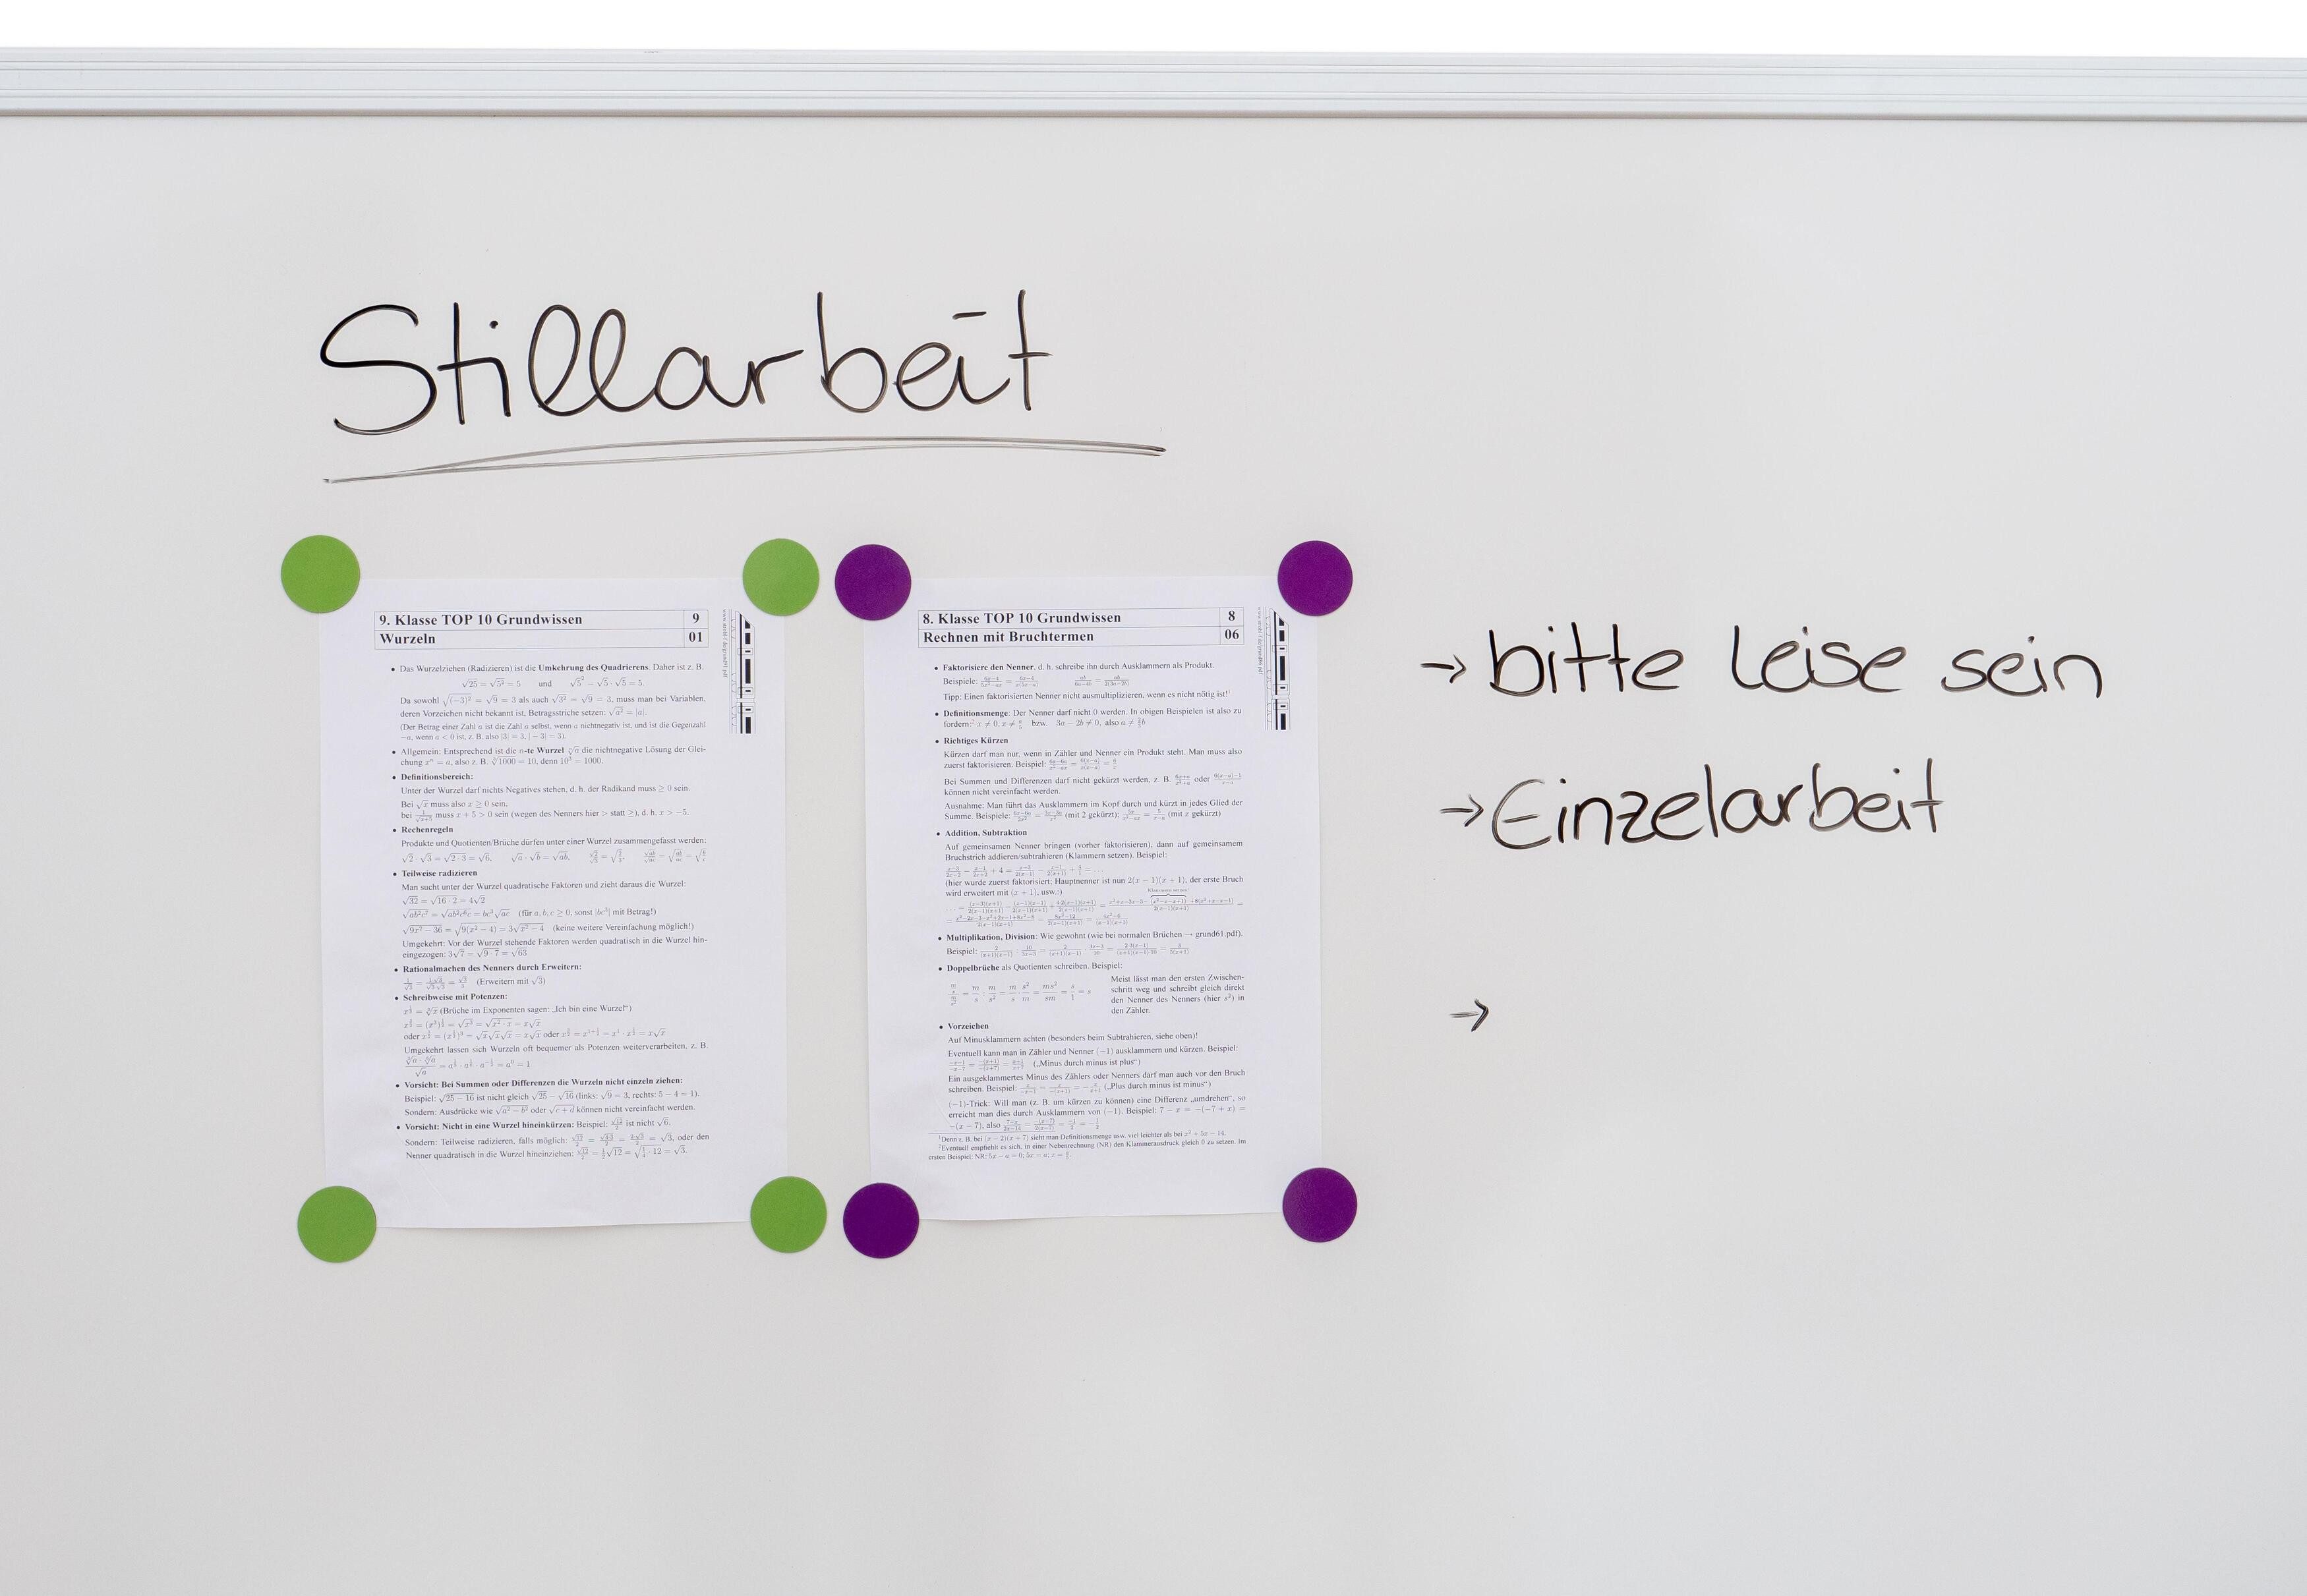 Stillarbeit
9. Klasse TOP 10 Grundwissen 9
Wurzeln 01
• Das Wurzelziehen (Radizieren) ist die Umkehrung des Quadrierens. Daher ist z. B.
√25 = √5² = 5 und √5² = √5 · √5 = 5.
Da sowohl √(−3)² = √9 = 3 als auch √3² = √9 = 3, muss man bei Variablen,
deren Vorzeichen nicht bekannt ist, Betragsstriche setzen: √a² = |a|.
(Der Betrag einer Zahl a ist die Zahl a selbst, wenn a nichtnegativ ist, und ist die Gegenzahl
−a, wenn a < 0 ist, z. B. also |3| = 3, |−3| = 3).
• Allgemein: Entsprechend ist die n-te Wurzel ⁿ√a die nichtnegative Lösung der Glei-
chung xⁿ = a, also z. B. ³√1000 = 10, denn 10³ = 1000.
• Definitionsbereich:
Unter der Wurzel darf nichts Negatives stehen, d. h. der Radikand muss ≥ 0 sein.
Bei √x muss also x ≥ 0 sein,
bei 1/√(x+5) muss x + 5 > 0 sein (wegen des Nenners hier > statt ≥), d. h. x > −5.
• Rechenregeln
Produkte und Quotienten/Brüche dürfen unter einer Wurzel zusammengefasst werden:
√2 · √3 = √(2 · 3) = √6, √a · √b = √ab,
• Teilweise radizieren
Man sucht unter der Wurzel quadratische Faktoren und zieht daraus die Wurzel:
√32 = √(16 · 2) = 4√2
(für a, b, c ≥ 0, sonst |bc³| mit Betrag!)
√(9x² − 36) = √(9(x² − 4)) = 3√(x² − 4) (keine weitere Vereinfachung möglich!)
Umgekehrt: Vor der Wurzel stehende Faktoren werden quadratisch in die Wurzel hin-
eingezogen: 3√7 = √(9 · 7) = √63
• Rationalmachen des Nenners durch Erweitern:
(Erweitern mit √3)
• Schreibweise mit Potenzen:
(Brüche im Exponenten sagen: „Ich bin eine Wurzel“)
Umgekehrt lassen sich Wurzeln oft bequemer als Potenzen weiterverarbeiten, z. B.
• Vorsicht: Bei Summen oder Differenzen die Wurzeln nicht einzeln ziehen:
Beispiel: √(25 − 16) ist nicht gleich √25 − √16 (links: √9 = 3, rechts: 5 − 4 = 1).
Sondern: Ausdrücke wie √(a² − b²) oder √(c + d) können nicht vereinfacht werden.
• Vorsicht: Nicht in eine Wurzel hineinkürzen: Beispiel: √12/2 ist nicht √6.
Sondern: Teilweise radizieren, falls möglich: oder den
Nenner quadratisch in die Wurzel hineinziehen:
8. Klasse TOP 10 Grundwissen 8
Rechnen mit Bruchtermen 06
• Faktorisiere den Nenner, d. h. schreibe ihn durch Ausklammern als Produkt.
Beispiele:
Tipp: Einen faktorisierten Nenner nicht ausmultiplizieren, wenn es nicht nötig ist!¹
• Definitionsmenge: Der Nenner darf nicht 0 werden. In obigen Beispielen ist also zu
fordern:² bzw. 3a − 2b ≠ 0, also
• Richtiges Kürzen
Kürzen darf man nur, wenn in Zähler und Nenner ein Produkt steht. Man muss also
zuerst faktorisieren. Beispiel:
Bei Summen und Differenzen darf nicht gekürzt werden, z. B. oder
können nicht vereinfacht werden.
Ausnahme: Man führt das Ausklammern im Kopf durch und kürzt in jedes Glied der
Summe. Beispiele: (mit 2 gekürzt); (mit x gekürzt)
• Addition, Subtraktion
Auf gemeinsamen Nenner bringen (vorher faktorisieren), dann auf gemeinsamem
Bruchstrich addieren/subtrahieren (Klammern setzen). Beispiel:
(hier wurde zuerst faktorisiert; Hauptnenner ist nun 2(x − 1)(x + 1), der erste Bruch
wird erweitert mit (x + 1), usw.:)
• Multiplikation, Division: Wie gewohnt (wie bei normalen Brüchen → grund61.pdf).
Beispiel:
• Doppelbrüche als Quotienten schreiben. Beispiel:
Meist lässt man den ersten Zwischen-
schritt weg und schreibt gleich direkt
den Nenner des Nenners (hier s²) in
den Zähler.
• Vorzeichen
Auf Minusklammern achten (besonders beim Subtrahieren, siehe oben)!
Eventuell kann man in Zähler und Nenner (−1) ausklammern und kürzen. Beispiel:
(„Minus durch minus ist plus“)
Ein ausgeklammertes Minus des Zählers oder Nenners darf man auch vor den Bruch
schreiben. Beispiel: („Plus durch minus ist minus“)
(−1)-Trick: Will man (z. B. um kürzen zu können) eine Differenz „umdrehen“, so
erreicht man dies durch Ausklammern von (−1). Beispiel: 7 − x = −(−7 + x) =
−(x − 7), also
¹Denn z. B. bei (x − 2)(x + 7) sieht man Definitionsmenge usw. viel leichter als bei x² + 5x − 14.
²Eventuell empfiehlt es sich, in einer Nebenrechnung (NR) den Klammerausdruck gleich 0 zu setzen. Im
ersten Beispiel: NR: 5x − a = 0; 5x = a;
→ bitte leise sein
→ Einzelarbeit
→